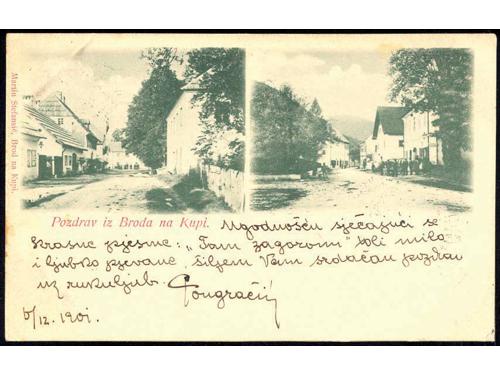 Martin Stefančić, Brod na Kupi.
Pozdrav iz Broda na Kupi.
Ugodnošću sjećajući se
krasne pjesme: „Tam zagorom" toli milo
i ljubko pjevane, šiljem Vam srdačan pozdrav
uz rukuljub. Pongračić
6/12. 1901.